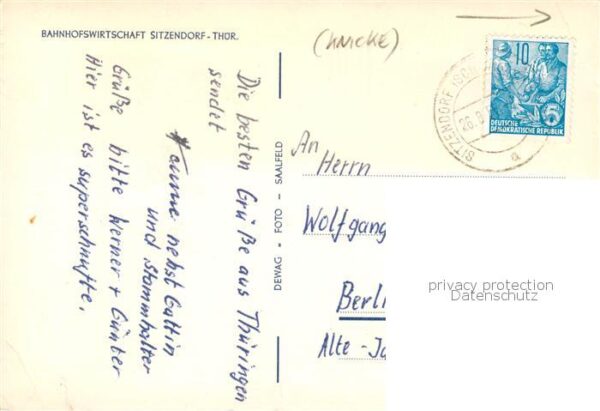 BAHNHOFSWIRTSCHAFT SITZENDORF-THÜR.
(KNICKE)
Die besten Grüße aus Thüringen
sendet
nebst Gattin
und Stammhalter
Grüße bitte Werner + Günter
Hier ist es superschnufte.
DEWAG • FOTO • SAALFELD
An
Herrn
Wolfgang
Berli
Alte-Ja
10
5
DEUTSCHE
DEMOKRATISCHE REPUBLIK
SITZENDORF
26.8.
a
privacy protection
Datenschutz